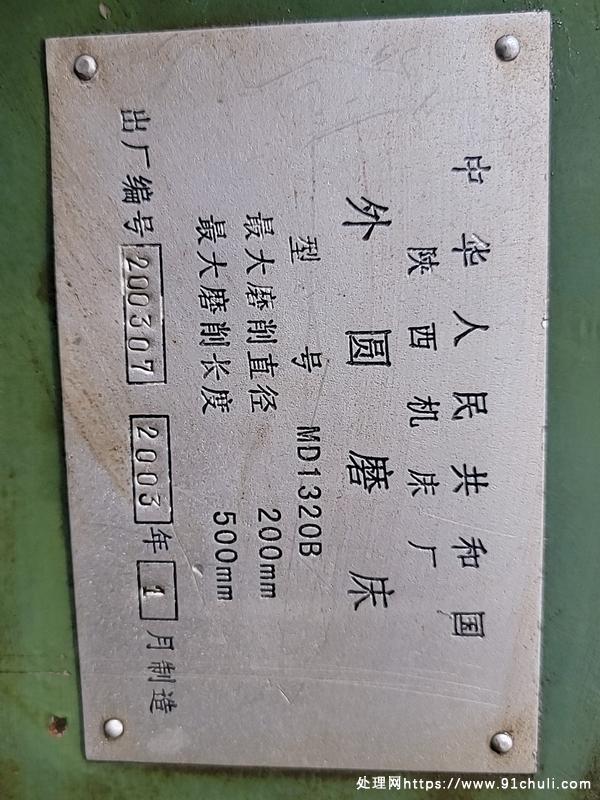 中华人民共和国
陕西机床厂
外圆磨床
型号 MD1320B
最大磨削直径 200mm
最大磨削长度 500mm
出厂编号 200307 2003年1月制造
处理网https://www.91chuli.com/